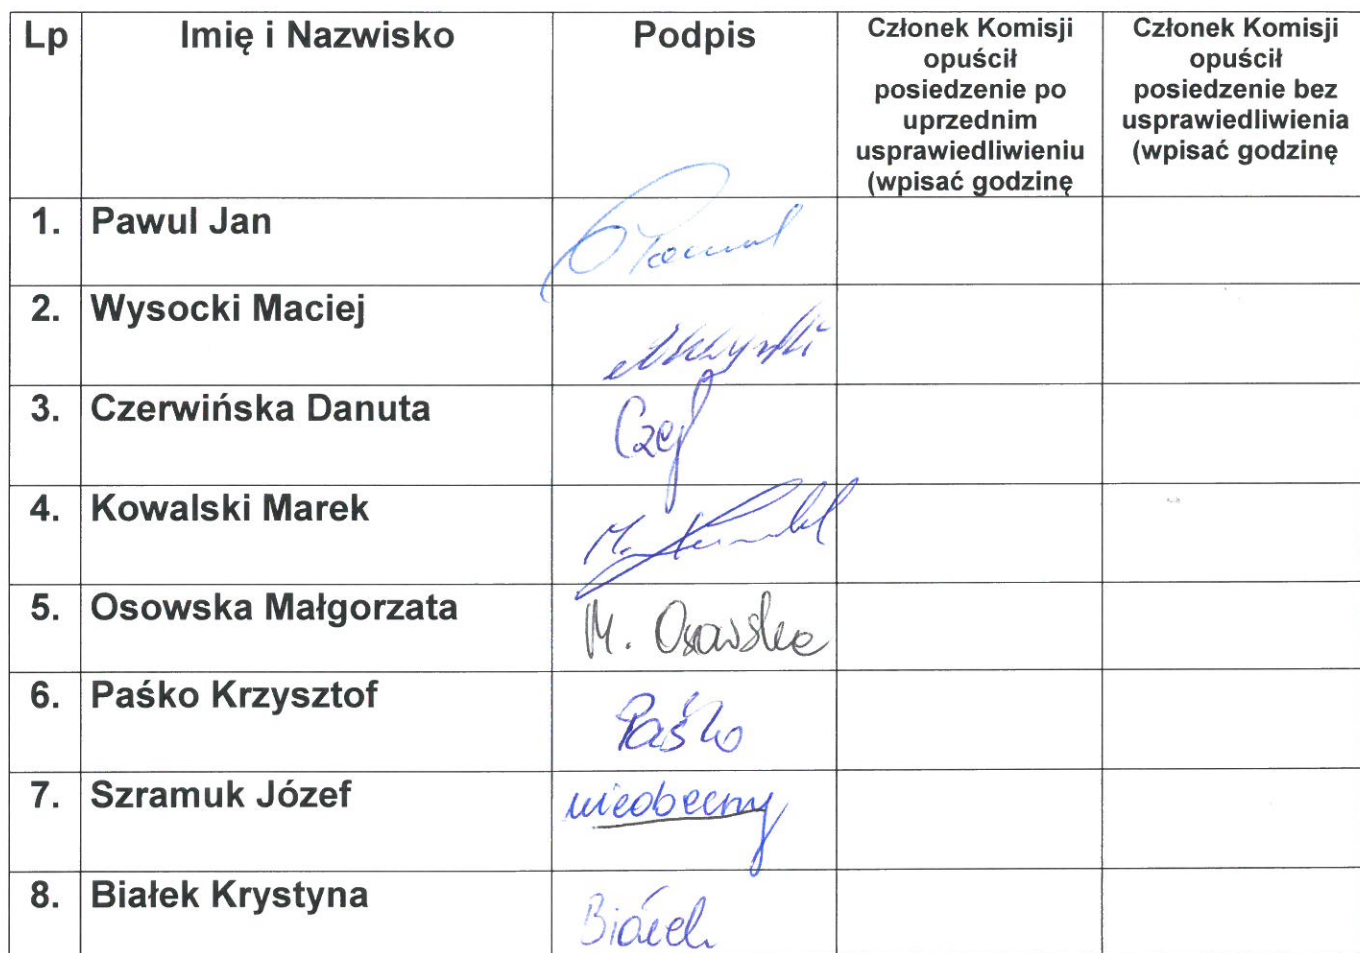 Lp Imię i Nazwisko Podpis Członek Komisji opuścił posiedzenie po uprzednim usprawiedliwieniu (wpisać godzinę Członek Komisji opuścił posiedzenie bez usprawiedliwienia (wpisać godzinę
1. Pawul Jan
2. Wysocki Maciej
3. Czerwińska Danuta
4. Kowalski Marek
5. Osowska Małgorzata M. Osowska
6. Paśko Krzysztof Paśko
7. Szramuk Józef nieobecny
8. Białek Krystyna Białek